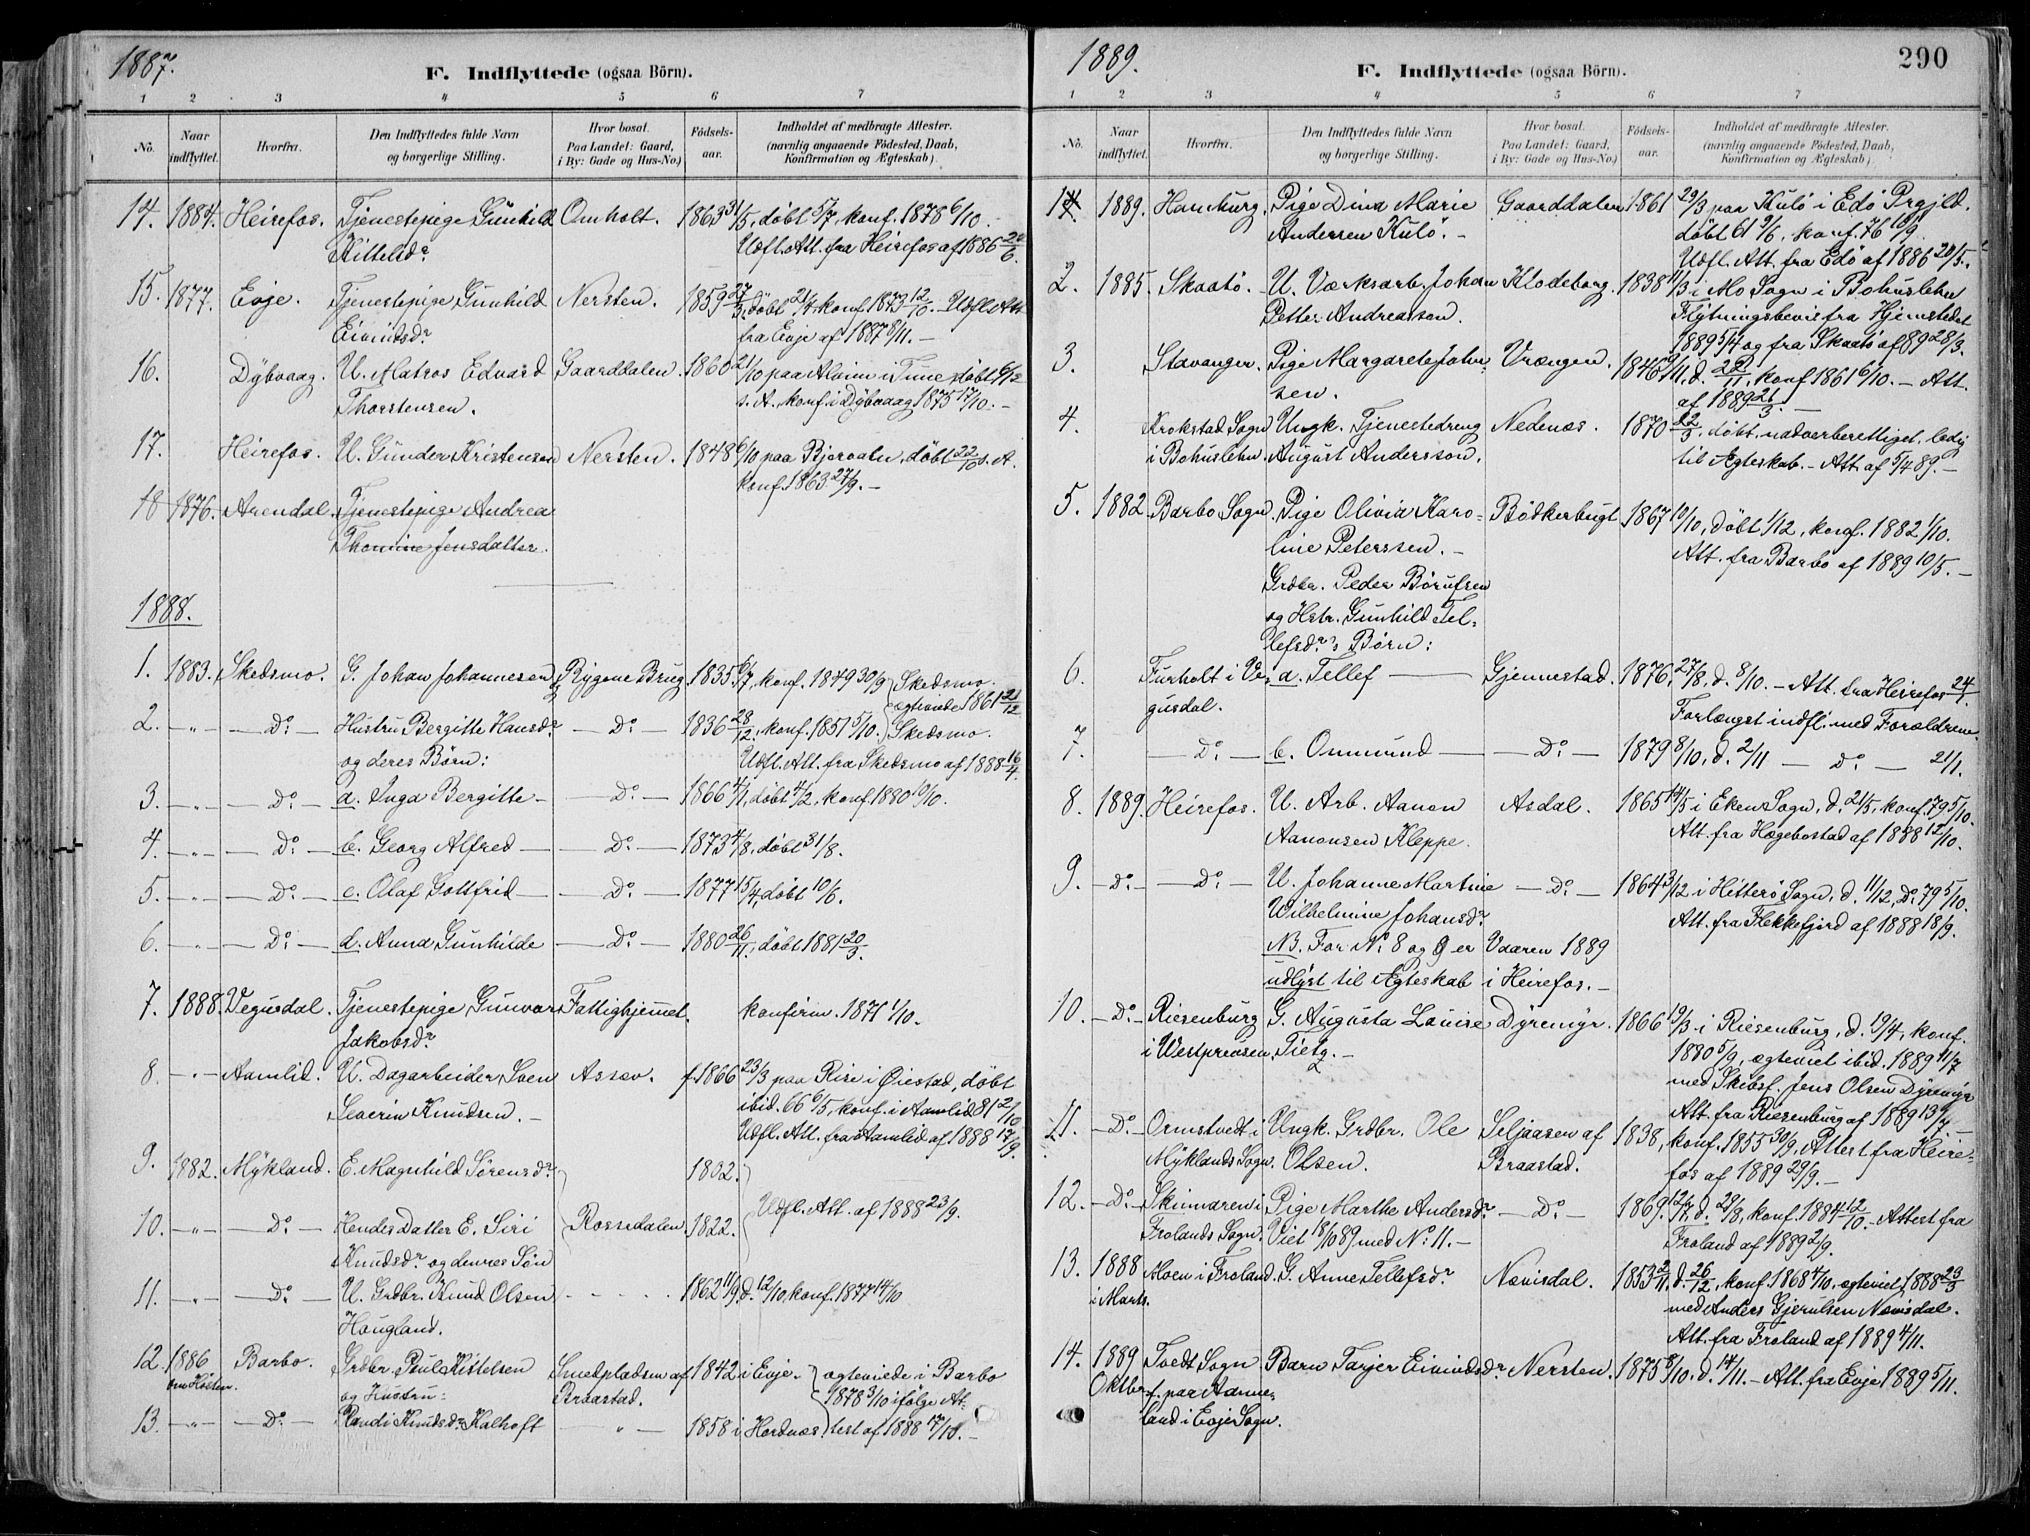 1887.
F. Indflyttede (ogsaa Börn).
1 2 3 4 5 6 7
No.
Naar indflyttet.
Hvorfra.
Den Indflyttedes fulde Navn og borgerlige Stilling.
Hvor bosat. Paa Landet: Gaard, i By: Gade og Hus-No.)
Födsels-aar.
Indholdet af medbragte Attester. (navnlig angaaende Födested, Daab, Konfirmation og Ægteskab)
14. 1884. Heirefos. Tjenestepige Gunhild Omholt. 1863 31/5, döbt 5/7, konf. 1878 6/10.
Kittelsdr. Udfl. Att. fra Heirefos af 1886
15. 1877. Evje. Tjenestepige Gunhild Nersten. 1859 27/3, döbt 21/4, konf. 1873 12/10. Udfl. Att.
Eivindsdr. fra Evje af 1887 8/11. –
16. Dybvaag. U. Matros Edvard Gaarddalen. 1860 21/10 paa Alvim i Tune, döbt 6/12
Thorstensen. s. A. konf. i Dybvaag 1875 17/10. –
17. Heirefos. U. Gunder Kristensen Nersten. 1848 6/10 paa Bjorvatn, döbt 22/10 s. A.
konf. 1863 27/9. –
18 1876. Arendal. Tjenestepige Andrea
Thomine Jensdatter.
1888.
1. 1883. Skedsmo. G. Johan Johannesen Rygene Brug 1835 6/7, konf. 1849 30/9 Skedsmo.
ægteviede 1861 21/12
2. – " – – Do – Hustru Bergitte Hansdr. – Do – 1836 28/12, konf. 1851 5/10. Skedsmo.
og deres Börn: Udfl. Att. fra Skedsmo af 1888 16/4.
3. – " – – Do – a. Inga Bergitte – – Do – 1866 4/1, döbt 4/2, konf. 1880 10/10.
4. – " – – Do – b. Georg Alfred – – Do – 1873 4/8, döbt 31/8.
5. – " – – Do – c. Olaf Gottfrid – – Do – 1877 15/4, döbt 10/6.
6. – " – – Do – d. Anna Gunhilde – Do – 1880 26/11, döbt 1881 20/3.
7. 1888. Vegusdal. Tjenestepige Gunvor Fattighjemmet. konfirm. 1871 1/10.
Jakobsdr.
8. – " – Aamlid. U. Dagarbeider Sven Assev. f. 1866 23/3 paa Rise i Øiestad, döbt
Severin Knudsen. – ibid. 66 6/5, konf. i Aamlid 81 2/10
Udfl. Att. fra Aamlid af 1888 17/9.
9. 1882. Mykland. E. Magnhild Sörensdr. 1802.
Udfl. Att. af 1888 23/9.
10. " – Do – Hendes Datter E. Siri Rossedalen 1822.
Knudsdr. og dennes Sön
11. " – Do – U. Grdbr. Knud Olsen – – – – 1862 11/9, d. 12/10, konf. 1877 14/10
Hougland.
12. 1886 Barbo. Grdbr. Poul Kittelsen Smedpladsen af 1842 i Evje. ægteviede i Barbo
om Hösten. og Hustru: Braastad. 1878 3/10 ifölge At-
13. – " – – Do – Randi Knudsdr. Kalhoft – " – 1858 i Hordnæs test af 1888 17/10. –
1889.
F. Indflyttede (ogsaa Börn).
290
1 2 3 4 5 6 7
No.
Naar indflyttet.
Hvorfra.
Den Indflyttedes fulde Navn og borgerlige Stilling.
Hvor bosat. Paa Landet: Gaard, i By: Gade og Hus-No.)
Födsels-aar.
Indholdet af medbragte Attester. (navnlig angaaende Födested, Daab, Konfirmation og Ægteskab)
1. 1889. Hamburg. Pige Dina Marie Gaarddalen 1861 29/3 paa Kulö i Edö Prgjld.
Andersen Kulö. – döbt 61 9/6, konf. 76 10/9.
Udfl. Att. fra Edö af 1886 20/5. –
2. 1885. Skaatö. U. Værksarb. Johan Klodeborg. 1838 11/3 i Mo Sogn i Bohuslehn
Petter Andreassen. Flytningsbevis fra Hjemstedet
1889 5/4 og fra Skaatö af 89 28/3.
3. Stavanger. Pige Margarete John- Vrængen. 1846 9/11, d. 22/11, konf. 1861 6/10. – Att.
sen. af 1889 26/3. –
4. Krokstad Sogn Ungk. Tjenestedreng Nedenæs. 1870 22/3, döbt, nadverberettiget, ledig
i Bohuslehn. August Andersson. til Ægteskab. – Att. af 5/4 89. –
5. 1882 Barbo Sogn. Pige Olivia Karo- Bödkerbugt 1867 10/10, döbt 1/12, konf. 1882 1/10.
line Peterssen. – Att. fra Barbo af 1889 10/5. –
Grdbr. Peder Börufsen
og Hstr. Gunhild Tel-
lefsdr.s Börn:
6. Furholt i Ve- a. Tellef – Gjennestad. 1876, 27/8, d. 8/10. – Att. fra Heirefos 24/1.
gusdal. Forlængst indfl. med Forældrene.
7. – Do – b. Ommund – – Do – 1879 8/10, d. 2/11 – Do – 21/1.
8. 1889. Heirefos. U. Arb. Aanon Asdal. 1865 14/5 i Eken Sogn, d. 21/5, konf. 79 5/10.
Aanonsen Kleppe. Att. fra Hægebostad af 1888 12/10.
9. – Do – – Do – U. Johanne Martine – Do – 1864 3/12 i Hitterö Sogn, d. 11/12, Do 79 5/10.
Wilhelmine Johansdr. Att. fra Flekkefjord af 1888 18/9.
NB. For No 8 og 9 er Vaaren 1889
udlyst til Ægteskab i Heirefos. –
10. – Do – Riesenburg G. Augusta Louise Dyremyr. 1866 19/3 i Riesenburg, d. 19/4, konf.
i Westpreusen. Tietz. – 1880 5/9, ægteviet ibid. 1889 11/7
med Skibsf. Jens Olsen Dyremyr
Att. fra Riesenburg af 1889 13/7. –
11. – Do – Ormstvedt i Ungk. Grdbr. Ole Seljaasen af 1838, konf. 1855 30/9, Attest fra Heire-
Myklands Sogn. Olsen. Braastad. fos af 1889 29/9. –
12. – Do – Skinnaren i Pige Marthe Andersdr. – Do – 1869. 12/7, d. 28/8, konf. 1884 12/10. – Attest fra
Frolands Sogn. Viet 18/10 89 med No 11. – Froland af 1889 2/9.
13. 1888 Moen i Froland. G. Anne Tellefsdr. Nævisdal. 1853 2/11, d. 26/12, konf. 1868 4/10, ægteviet 1888 23/3
i Marts. med Anders Gjerulsen Nævisdal.
Att. fra Froland af 1889 4/11.
14. 1889 Tvedt Sogn Barn Tarjer Eivindsdr. Nersten. 1875 8/10. d. 14/11. – Att. fra Evje 1889 5/11.
Oktbr. f. paa Aamne-
land i Evje Sogn.